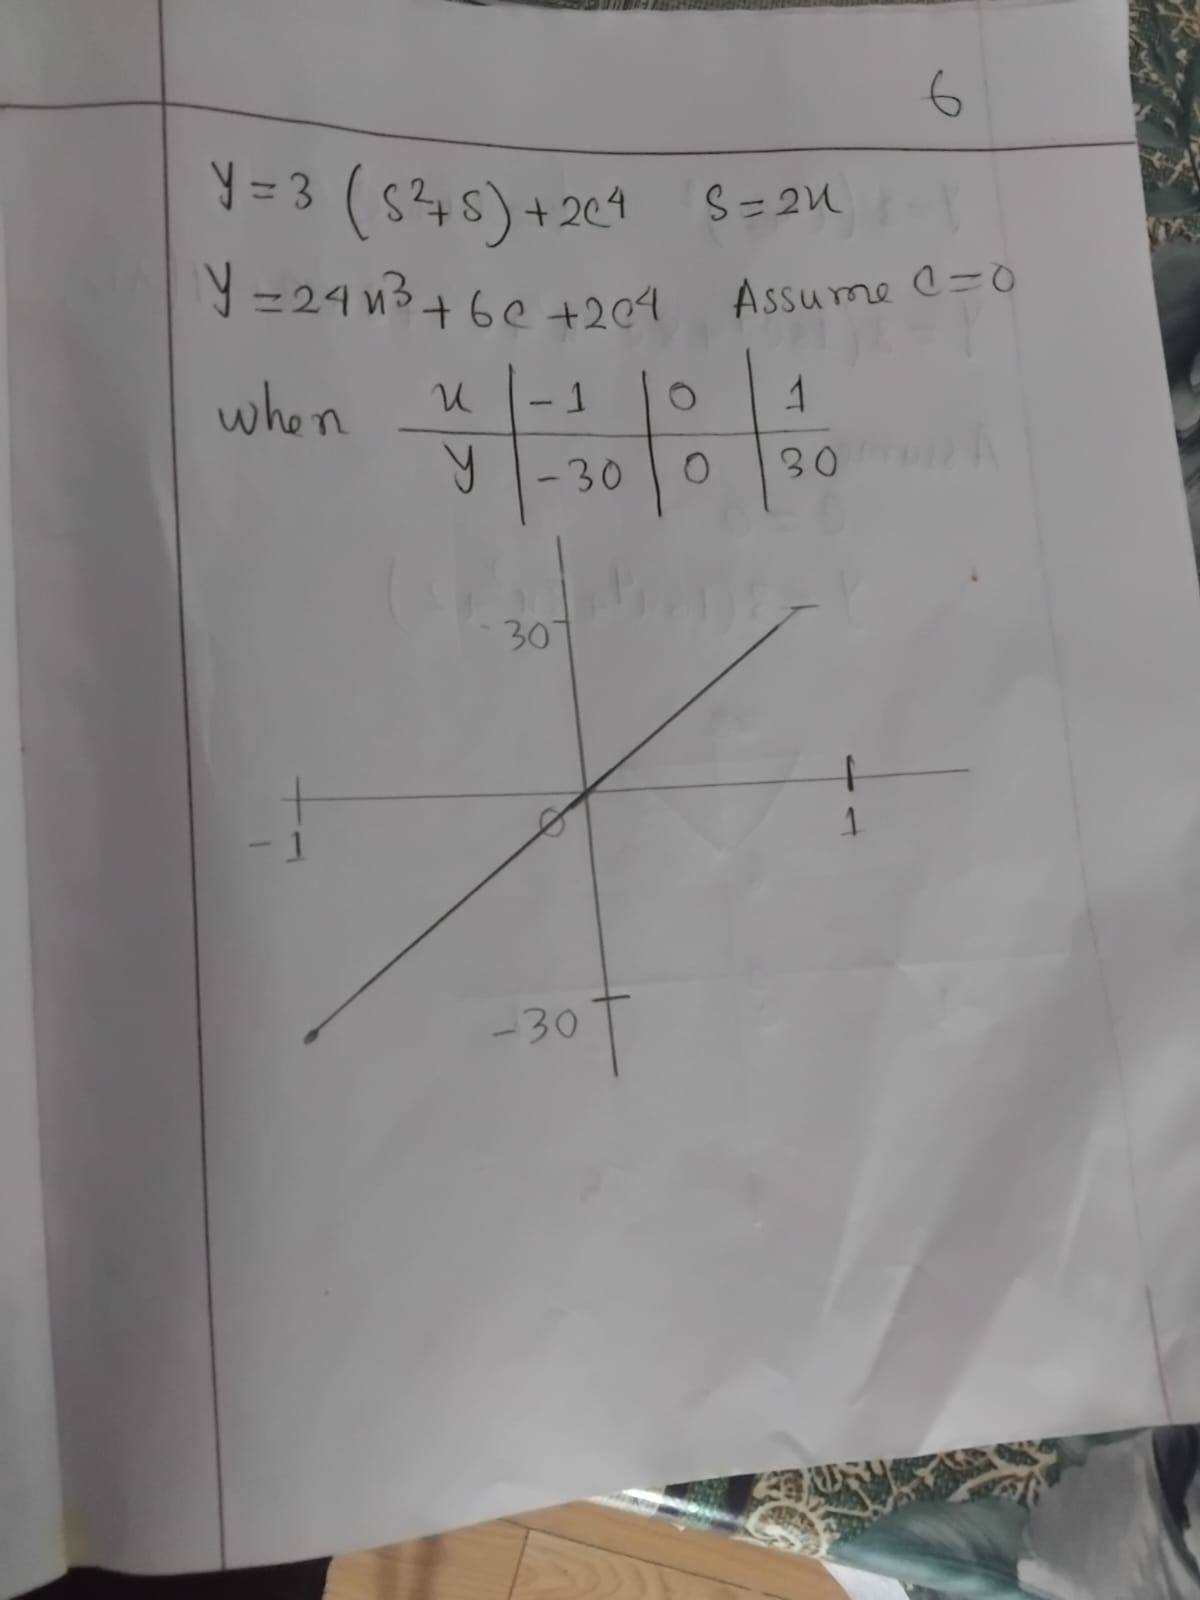 6
y = 3 (s²+s) + 2c⁴ s = 2x
y = 24x³ + 6c + 2c⁴ Assume c=0
when x | -1 | 0 | 1
y | -30 | 0 | 30
30
-1 0 1
-30